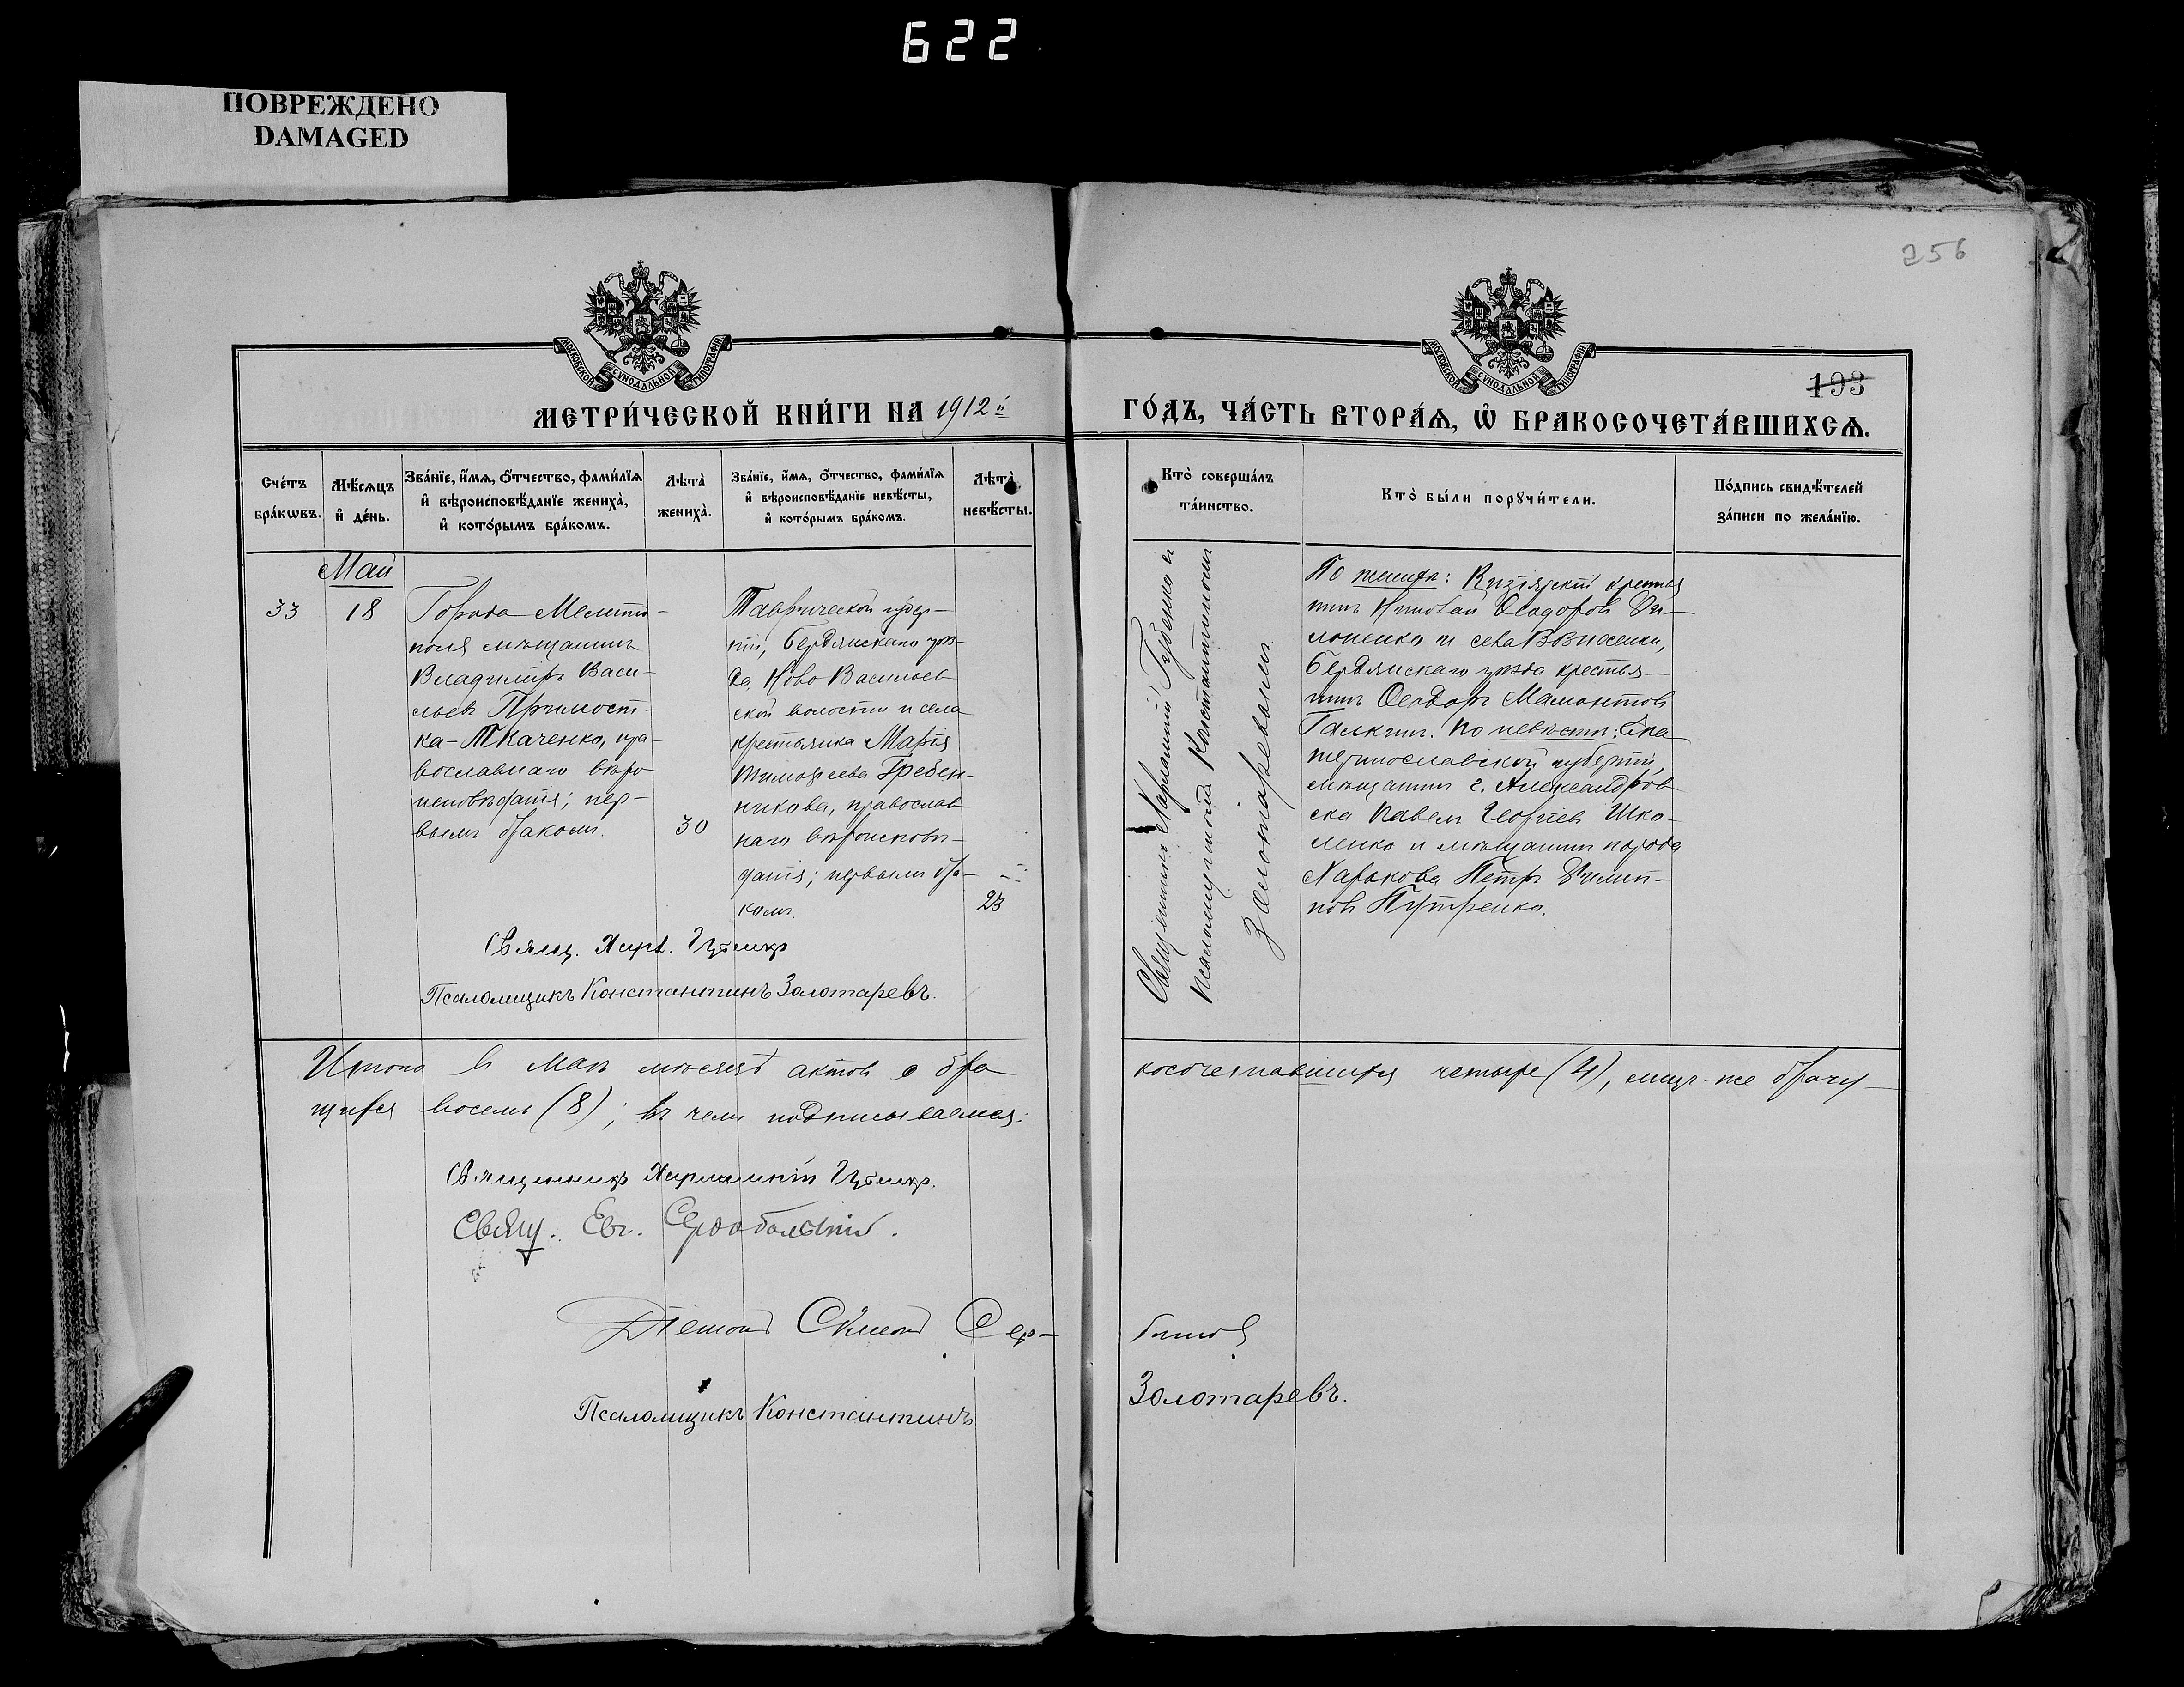 622
ПОВРЕЖДЕНО
DAMAGED
256
МОСКОВСКОЙ СУНОДАЛЬНОЙ ТИПОГРАФІИ
МОСКОВСКОЙ СУНОДАЛЬНОЙ ТИПОГРАФІИ
193
МЕТРИ́ЧЕСКОЙ КНИ́ГИ НА 1912й
ГО́ДЪ, ЧА́СТЬ ВТОРА́Ѧ, Ѡ҆ БРАКОСОЧЕТА́ВШИХСѦ.
Сче́тъ бра́кωвъ.
Мѣ́сѧцъ и҆ де́нь.
Зва́нїе, и҆́мѧ, ѻ҆́тчество, фами́лїѧ и҆ вѣроисповѣ́данїе жениха̀, и҆ кото́рымъ бра́комъ.
Лѣта̀ жениха̀.
Зва́нїе, и҆́мѧ, ѻ҆́тчество, фами́лїѧ и҆ вѣроисповѣ́данїе невѣ́сты, и҆ кото́рымъ бра́комъ.
Лѣта̀ невѣ́сты.
Кто̀ соверша́лъ та́инство.
Кто̀ бы́ли порꙋчи́тели.
По́дпись свидѣ́телей за́писи по жела́нїю.
Май
33
18
Города Мелито-
поля мѣщанинъ
Владиміръ Васи-
льевъ Примост-
ка-Ткаченко, пра-
вославнаго вѣро
исповѣданія; пер-
вымъ бракомъ.
30
Таврической губер-
ніи, Бердянскаго уѣз-
да, Ново Васильев
ской волости и села
крестьянка Марія
Тимофеева Гребен-
никова, православ
наго вѣроисповѣ-
данія; первымъ бра-
комъ.
23
Священникъ Харлампій Губенко съ
псаломщикомъ Константиномъ
Золотаревымъ
По женихѣ: Кизіярскій крестья
нинъ Николай Ѳеодоровъ
и села Вознесенки,
Бердянскаго уѣзда крестья-
нинъ Ѳеодоръ Мамонтовъ
Галкинъ. По невѣстѣ: Ека
теринославской губерніи,
мѣщанинъ г. Александров
ска Павелъ Георгіевъ Шко-
ленко и мѣщанинъ города
Харькова Петръ Филип-
повъ
Свящ. Харл.
Псаломщикъ Константинъ Золотаревъ.
Итого въ Маѣ мѣсяцѣ актовъ о бра
косочетавшихся четыре (4), лицъ-же брачу-
щихся восемь (8); въ чемъ подписываемся:
Священникъ Харлампій
Свящ. Евг. Сердобольскій.
Діаконъ Симеонъ Сер-
Псаломщикъ Константинъ
Золотаревъ.